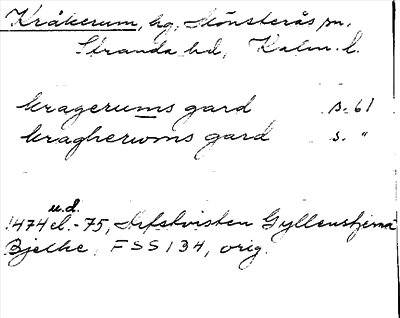 Kråkerum, hg, Mönsterås sn,
Stranda hd, Kalm. l.
kragerums gard s. 61
kragheroms gard s. "
u.d.
1474 el. -75, Arfstvisten Gyllenstjerna
Bjelke, FSS 134, orig.